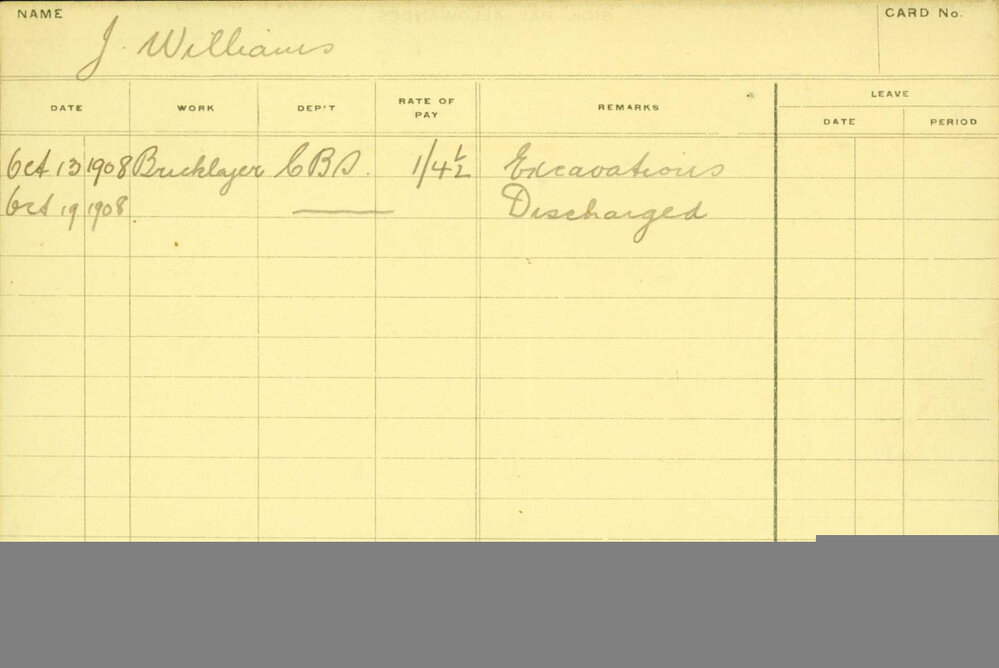 NAME CARD No.
J. Williams
DATE WORK DEP'T RATE OF PAY REMARKS LEAVE
DATE PERIOD
Oct 13 1908 Bricklayer CBS. 1/4½ Excavations
Oct 19 1908. Discharged